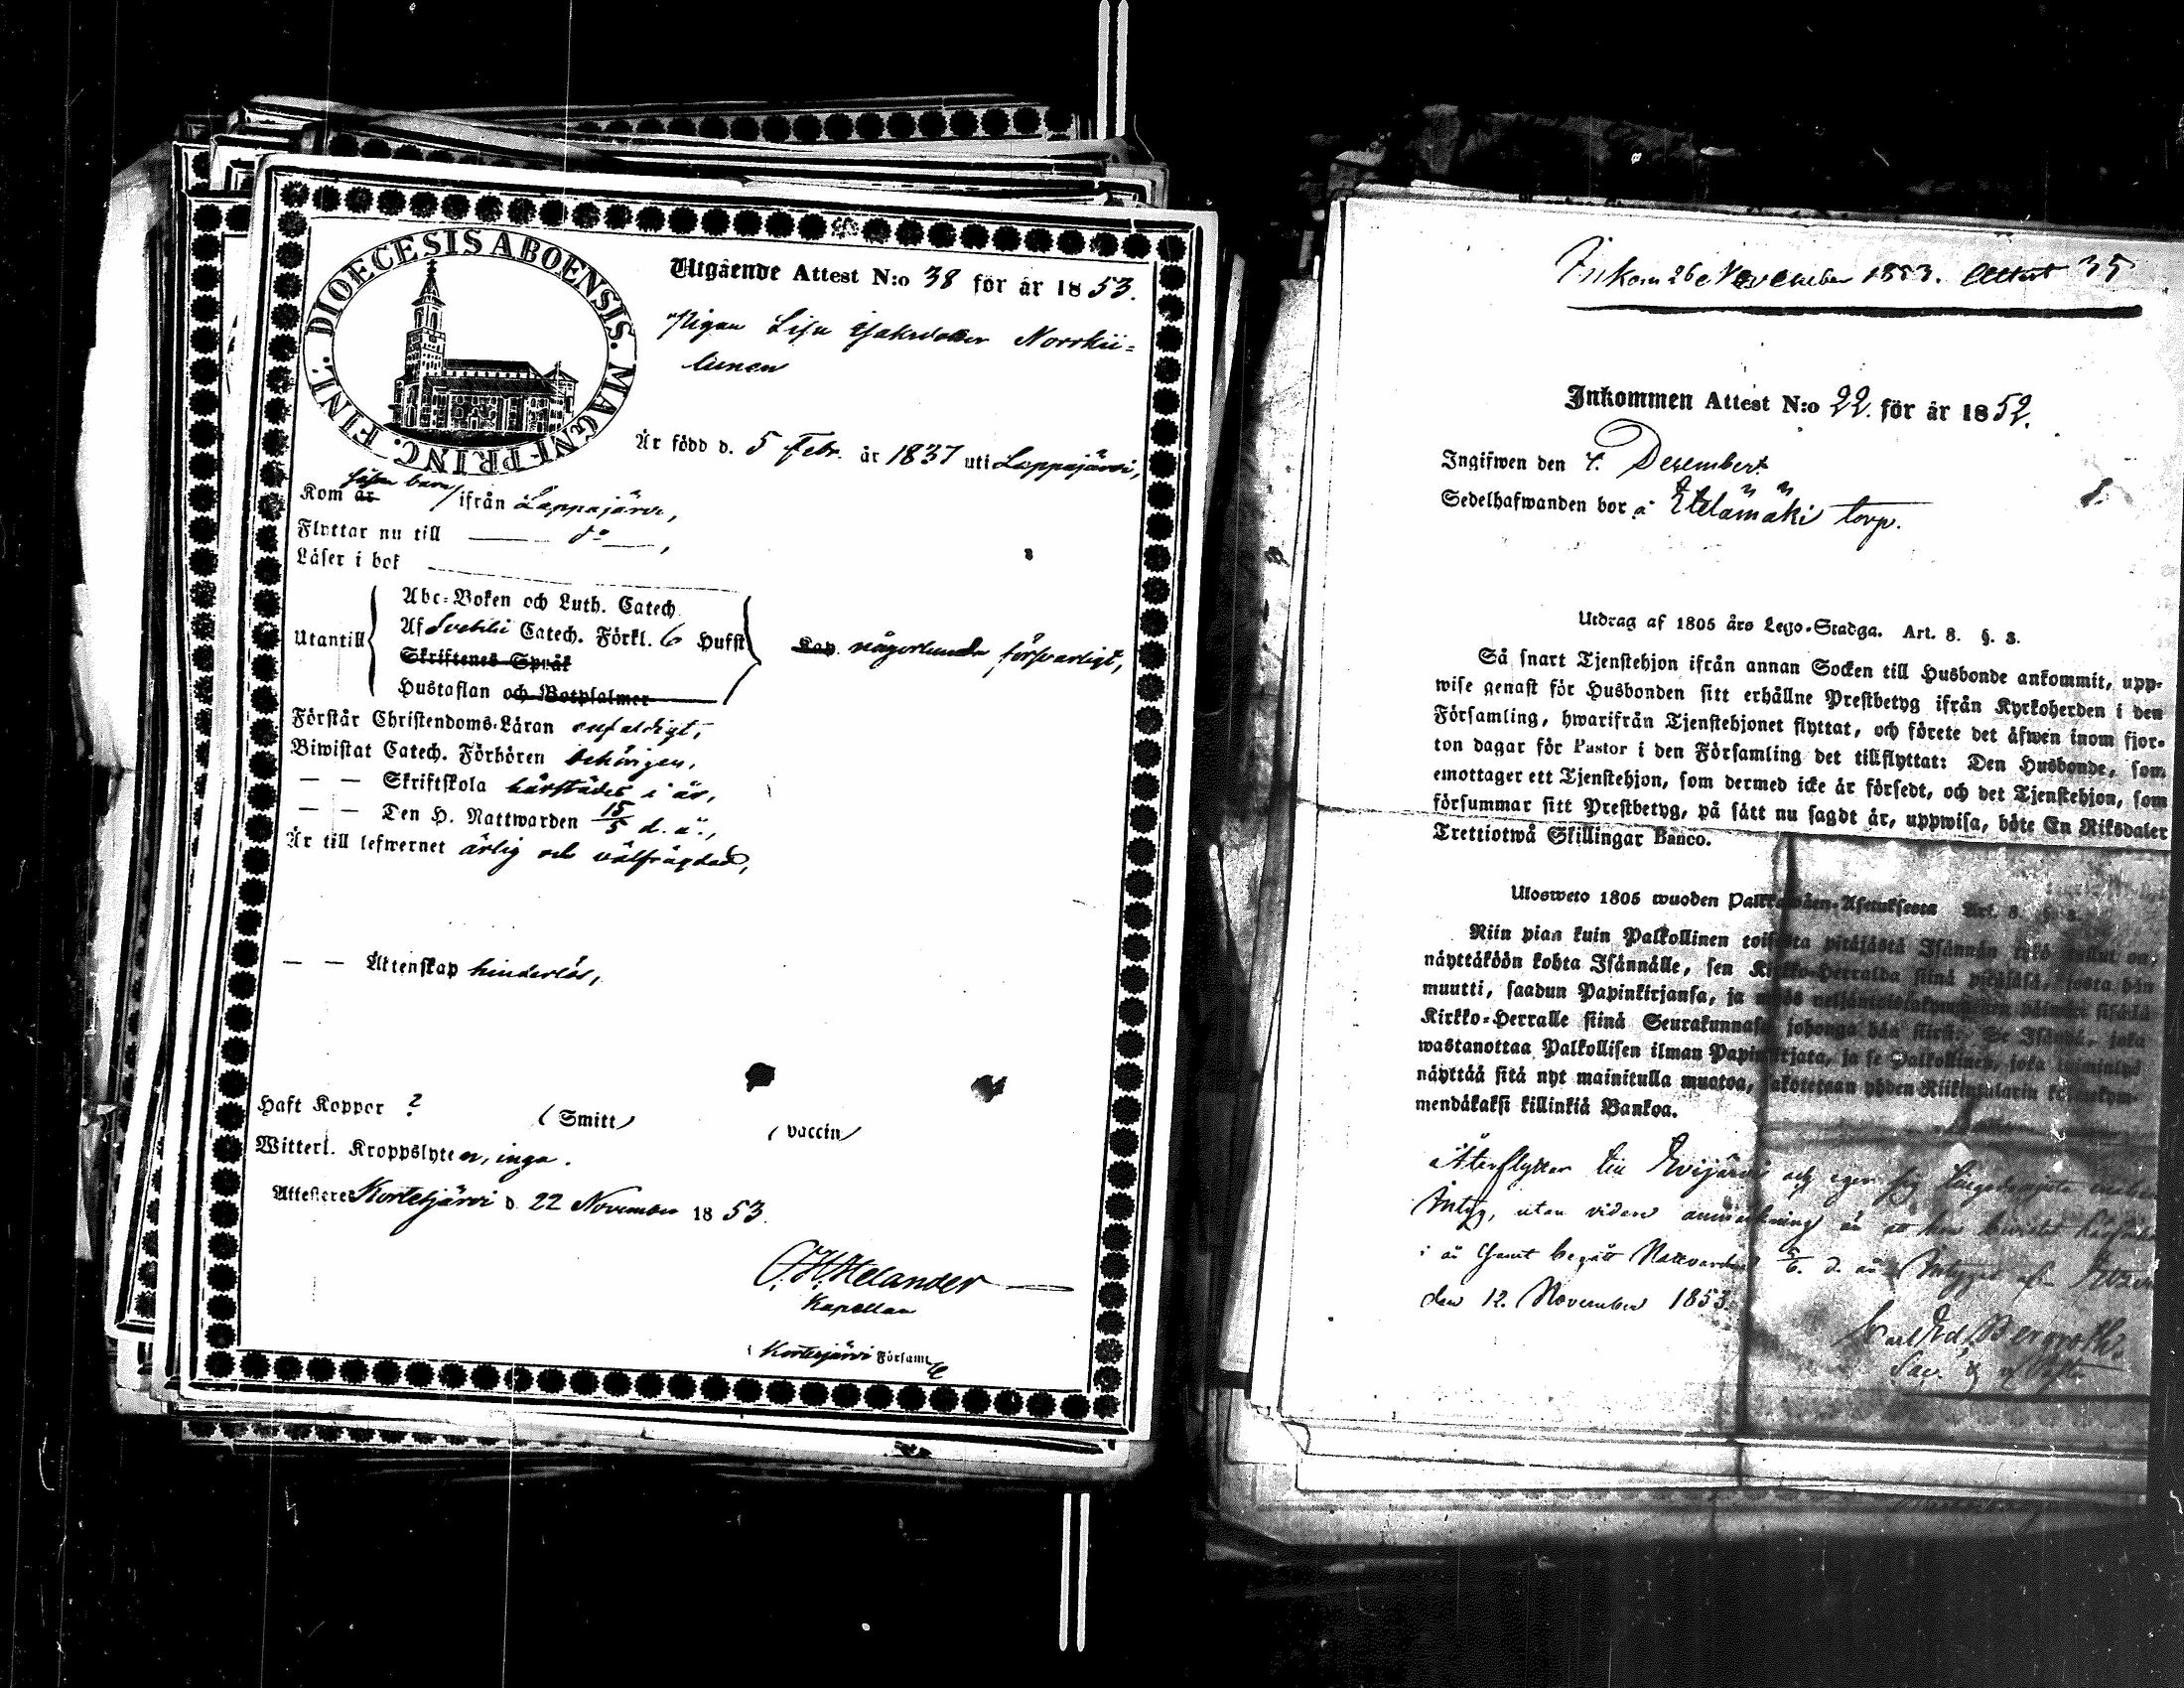 DIOECESIS ABOENSIS. MAGNI PRINC. FINL.
Utgående Attest N:o 38 för år 1853.
Pigan Lisa Norrkii=
lunen
Är född d. 5 Febr. år 1837 uti Lappajärvi,
Kom år såsom barn ifrån Lappajärvi,
Flyttar nu till — do —,
Läser i bok
Abc-Boken och Luth. Catech.
Utantill Af Svebilii Catech. Förkl. 6 Hufst någorlunda försvarligt,
Skriftenes Språk
Hustaflan och Botpsalmer
Förstår Christendoms-Läran enfaldigt,
Biwistat Catech. Förhören behörigen,
— — Skriftskola härstädes i år,
— — Den H. Nattwarden 15/5 d. å.,
Är till lefwernet ärlig och välfrägdad,
— — Äktenskap hinderlös,
Haft Koppor ? (Smitt) (vaccin)
Witterl. Kroppslyten, inga.
Attesterer Kortesjärvi d. 22 November 1853.
O. H. Helander
Kapellan
i Kortesjärvi Församl
Inkom 26 November 1853. Attest 35
Inkommen Attest N:o 22. för år 1852.
Ingifwen den 4. Dezember
Sedelhafwanden bor å Etelämäki torp.
Utdrag af 1805 års Lego-Stadga. Art. 8. §. 8.
Så snart Tjenstehjon ifrån annan Socken till Husbonde ankommit, upp-
wise genast för Husbonden sitt erhållne Prestbetyg ifrån Kyrkoherden i den
Församling, hwarifrån Tjenstehjonet flyttat, och förete det äfwen inom fjor-
ton dagar för Pastor i den Församling det tillflyttat: Den Husbonde, som
emottager ett Tjenstehjon, som dermed icke är försedt, och det Tjenstehjon, som
försummar sitt Prestbetyg, på sätt nu sagdt är, uppwisa, böte En Riksdaler
Trettiotwå Skillingar Banco.
Ulosweto 1805 wuoden Palkkawäen-Asetuksesta Art. 8.
Niin pian kuin Palkollinen toisesta pitäjästä Isännän tykö tullut on,
näyttäköön kohta Isännälle, sen Kirkko-Herralda siinä pitäjäsä, josta hän
muutti, saadun Papinkirjansa, ja myös
Kirkko-Herralle siinä Seurakunnasa, johonga hän siirsi. Se Isändä, joka
wastanottaa Palkollisen ilman Papinkirjata, ja se Palkollinen, joka
näyttää sitä nyt mainitulla muotoa, sakotetaan yhden Riikintalarin kolmekym-
mendäkaksi killinkiä Bankoa.
Återflyttar till Evijärvi och eger sig
Intyg, utan vidare anmärkning än att
i år samt begått Nattvarden 5/6. d. år
den 12. November 1853.
Carl Ed. Bergroth.